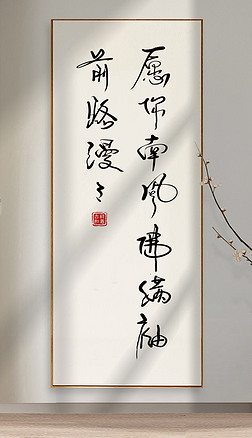 愿你南风拂满袖
前路漫々